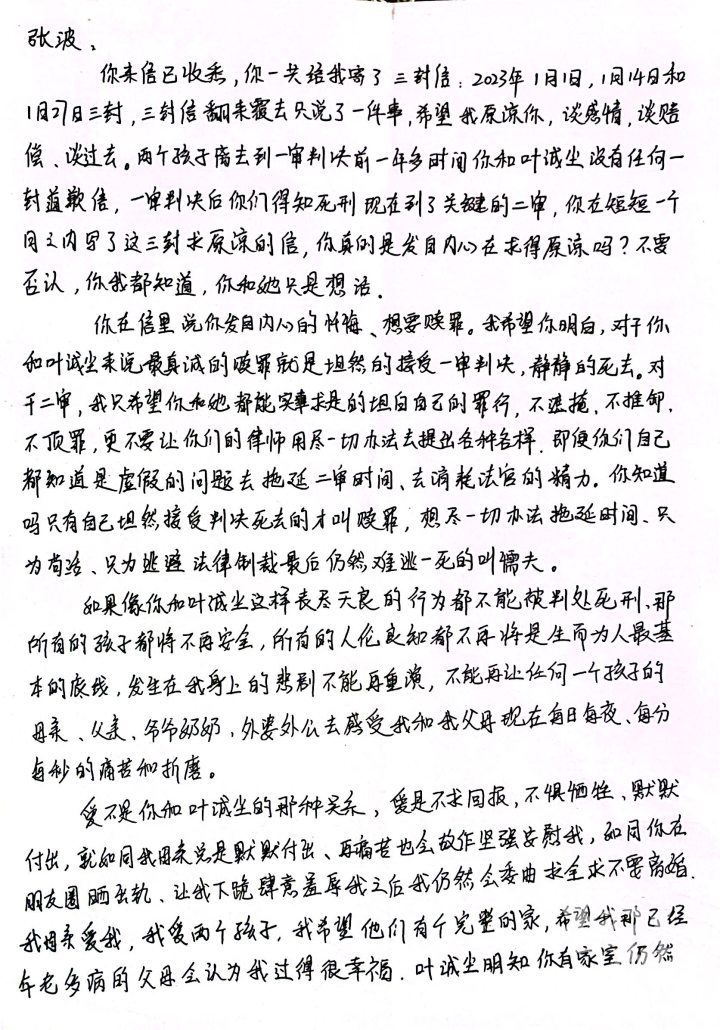 张波：
你来信已收悉，你一共给我寄了三封信：2023年1月1日，1月14日和
1月27日三封，三封信翻来覆去只说了一件事，希望我原谅你，谈感情，谈赔
偿、谈过去。两个孩子离去到一审判决前一年多时间你和叶诚尘没有任何一
封道歉信，一审判决后你们得知死刑现在到了关键的二审，你在短短一个
月之内写了这三封求原谅的信，你真的是发自内心在求得原谅吗？不要
否认，你我都知道，你和她只是想活．
你在信里说你发自内心的忏悔、想要赎罪。我希望你明白，对于你
和叶诚尘来说最真诚的赎罪就是坦然的接受一审判决，静静的死去。对
于二审，我只希望你和她都能实事求是的坦白自己的罪行，不遮掩，不推卸．
不顶罪，更不要让你们的律师用尽一切办法去提出各种各样．即便你们自己
都知道是虚假的问题去拖延二审时间、去消耗法官的精力。你知道
吗只有自己坦然接受判决死去的才叫赎罪，想尽一切办法拖延时间、只
为苟活、只为逃避法律制裁最后仍然难逃一死的叫懦夫。
如果像你和叶诚尘这样丧尽天良的行为都不能被判处死刑、那
所有的孩子都将不再安全，所有的人伦良知都不再将是生而为人最基
本的底线，发生在我身上的悲剧不能再重演，不能再让任何一个孩子的
母亲、父亲、爷爷奶奶、外婆外公去感受我和我父母现在每日每夜、每分
每秒的痛苦和折磨。
爱不是你和叶诚尘的那种关系，爱是不求回报，不惧牺牲、默默
付出，就如同我母亲总是默默付出、再痛苦也会故作坚强安慰我，如同你在
朋友圈晒出轨、让我下跪肆意羞辱我之后我仍然会委曲求全求不要离婚．
我母亲爱我，我爱两个孩子．我希望他们有个完整的家，希望我那已经
年老多病的父母会认为我过得很幸福．叶诚尘明知你有家室仍然